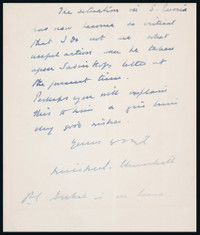 The situation in S. Russia
has now become so critical
that I do not see what
useful action can be taken
upon Savinkov's letter at
the present time.
Perhaps you will explain
this to him & give him
my good wishes.
Yours
Winston S. Churchill
P.S. is in